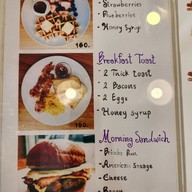 - Strawberries
- Blueberries
- Honey Syrup
160.
Breakfast Toast
- 2 Thick toast
- 2 Bacons
- 2 Eggs
- Honey Syrup
Morning Sandwich
- American Sausage
- Cheese
- Bacon